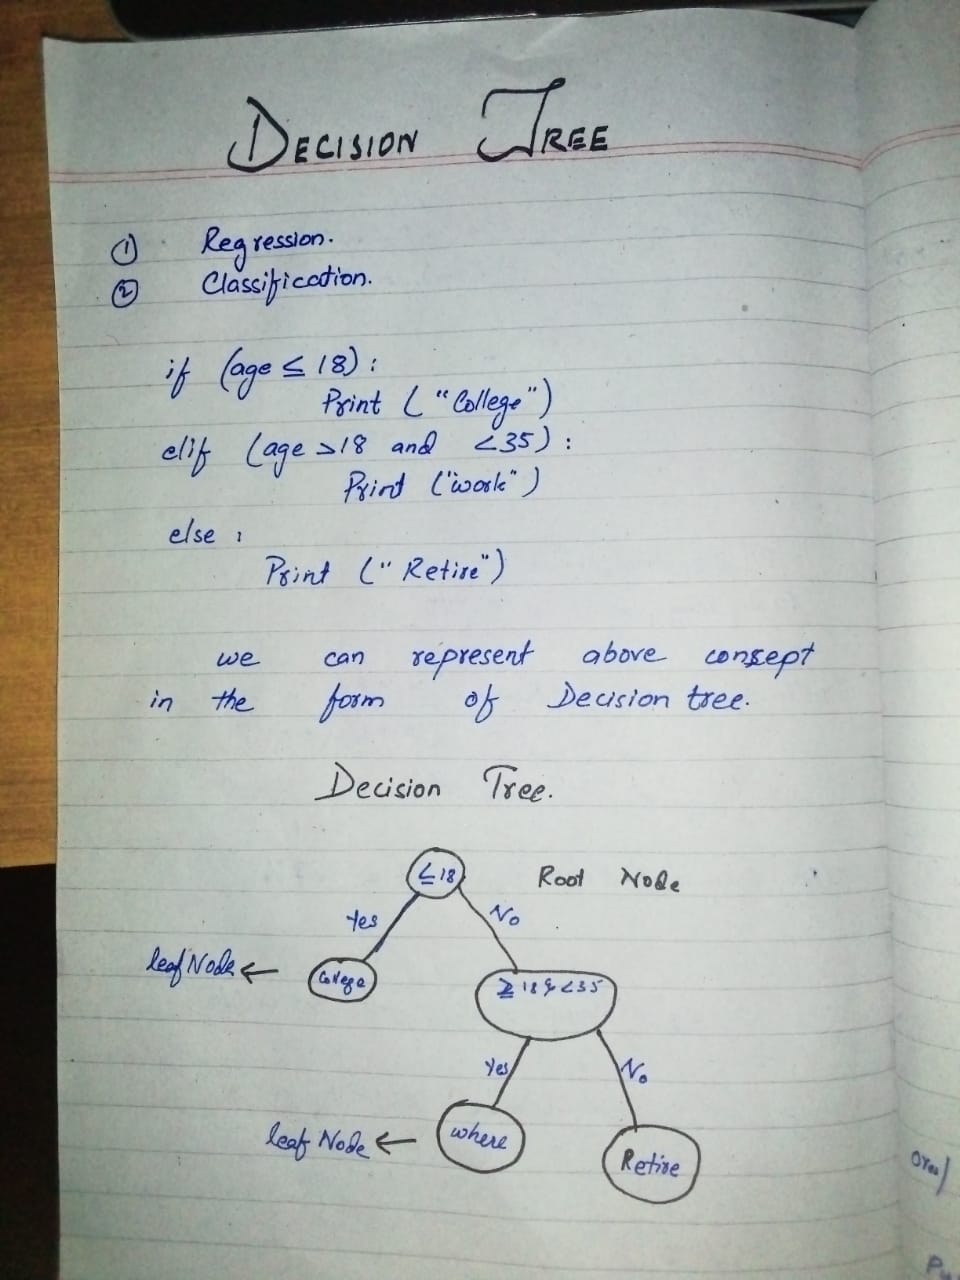 DECISION TREE
① Regression.
② Classification.
if (age ≤ 18) :
Print ( "College")
elif (age >18 and <35) :
Print ("work")
else :
Print (" Retire")
we can represent above consept
in the form of Decision tree.
Decision Tree.
≤18 Root Node
Yes No
leaf Node ← College
≥ 18 & <35
Yes No
leaf Node ← where
Retire